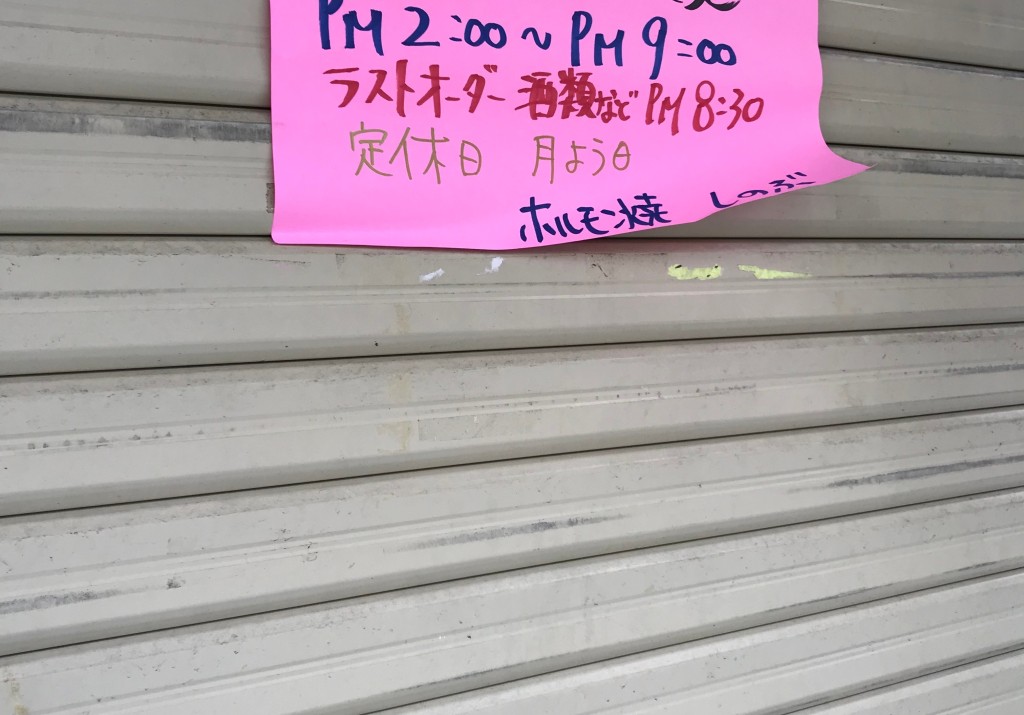 PM 2:00〜PM 9:00
ラストオーダー 酒類など PM 8:30
定休日 月よう日
ホルモン焼 しのぶ